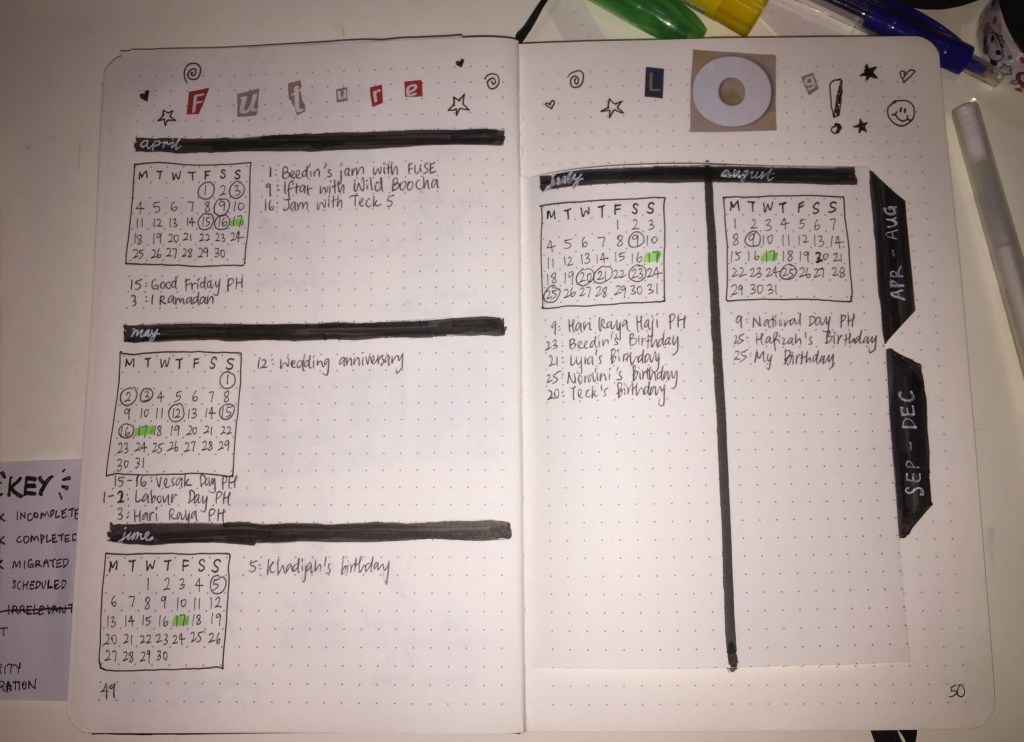 Future
april
M T W T F S S
1 2 3
4 5 6 7 8 9 10
11 12 13 14 15 16 17
18 19 20 21 22 23 24
25 26 27 28 29 30
1: Beedin's jam with FUSE
9: Iftar with Wild Boocha
16: Jam with Teck 5
15: Good Friday PH
3: 1 Ramadan
may
M T W T F S S
1
2 3 4 5 6 7 8
9 10 11 12 13 14 15
16 17 18 19 20 21 22
23 24 25 26 27 28 29
30 31
12: Wedding anniversary
15-16: Vesak Day PH
1-2: Labour Day PH
3: Hari Raya PH
june
M T W T F S S
1 2 3 4 5
6 7 8 9 10 11 12
13 14 15 16 17 18 19
20 21 22 23 24 25 26
27 28 29 30
5: Khadijah's birthday
49
LOg!
july
M T W T F S S
1 2 3
4 5 6 7 8 9 10
11 12 13 14 15 16 17
18 19 20 21 22 23 24
25 26 27 28 29 30 31
9: Hari Raya Haji PH
23: Beedin's Birthday
21: Lyra's Birthday
25: Noraini's Birthday
20: Teck's Birthday
august
M T W T F S S
1 2 3 4 5 6 7
8 9 10 11 12 13 14
15 16 17 18 19 20 21
22 23 24 25 26 27 28
29 30 31
9: National Day PH
25: Hafizah's Birthday
25: My Birthday
APR - AUG
SEP - DEC
50
KEY
X INCOMPLETE
X COMPLETED
X MIGRATED
SCHEDULED
IRRELEVANT
T
RITY
RATION